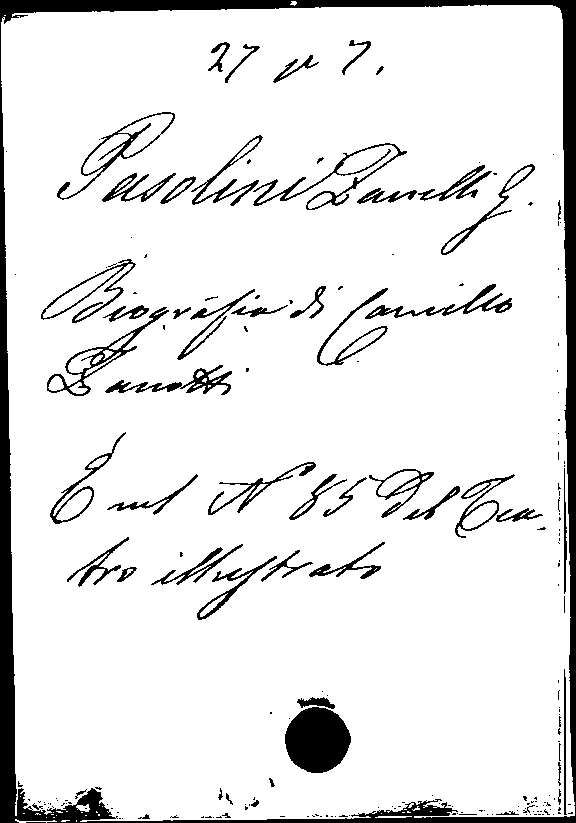 27 7.
Pasolini Zanelli G.
Biografia di Camillo
Zanotti
È nel N° 85 del Tea-
tro illustrato